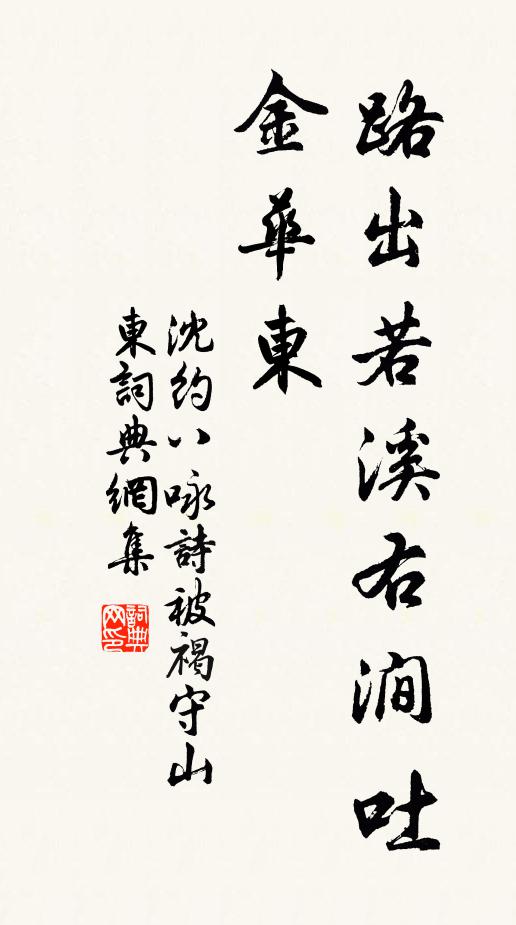 路出若溪右澗吐
金華東
沈約八咏詩被褐守山
東詞典網集
詞典
网印